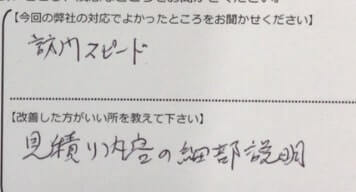 【今回の弊社の対応でよかったところをお聞かせください】
訪問スピード
【改善した方がいい所を教えて下さい】
見積り内容の細部説明